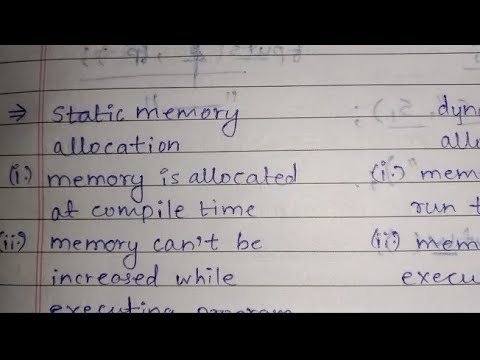 ⇒ static memory
allocation
(i.) memory is allocated
at compile time
(ii.) memory can't be
increased while
executing program
dyn
allo
(i.) mem
run t
(ii.) mem
execu